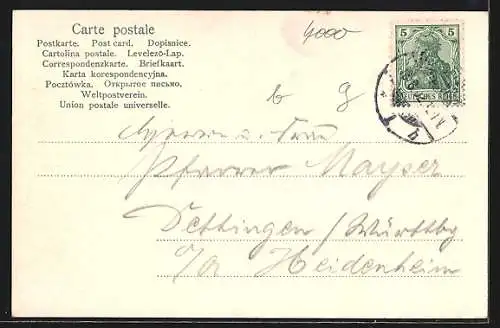 Carte postale
Postkarte. Post card. Dopisnice.
Cartolina postale. Levelező-Lap.
Correspondenzkarte. Briefkaart.
Karta korespondencyjna.
Pocztówka. Открытое письмо.
Weltpostverein.
Union postale universelle.
4000
5 5
DEUTSCHES REICH
b g
Herrn u. Frau
Pfarrer Mayser
Dettingen / Württbg
o/a Heidenheim